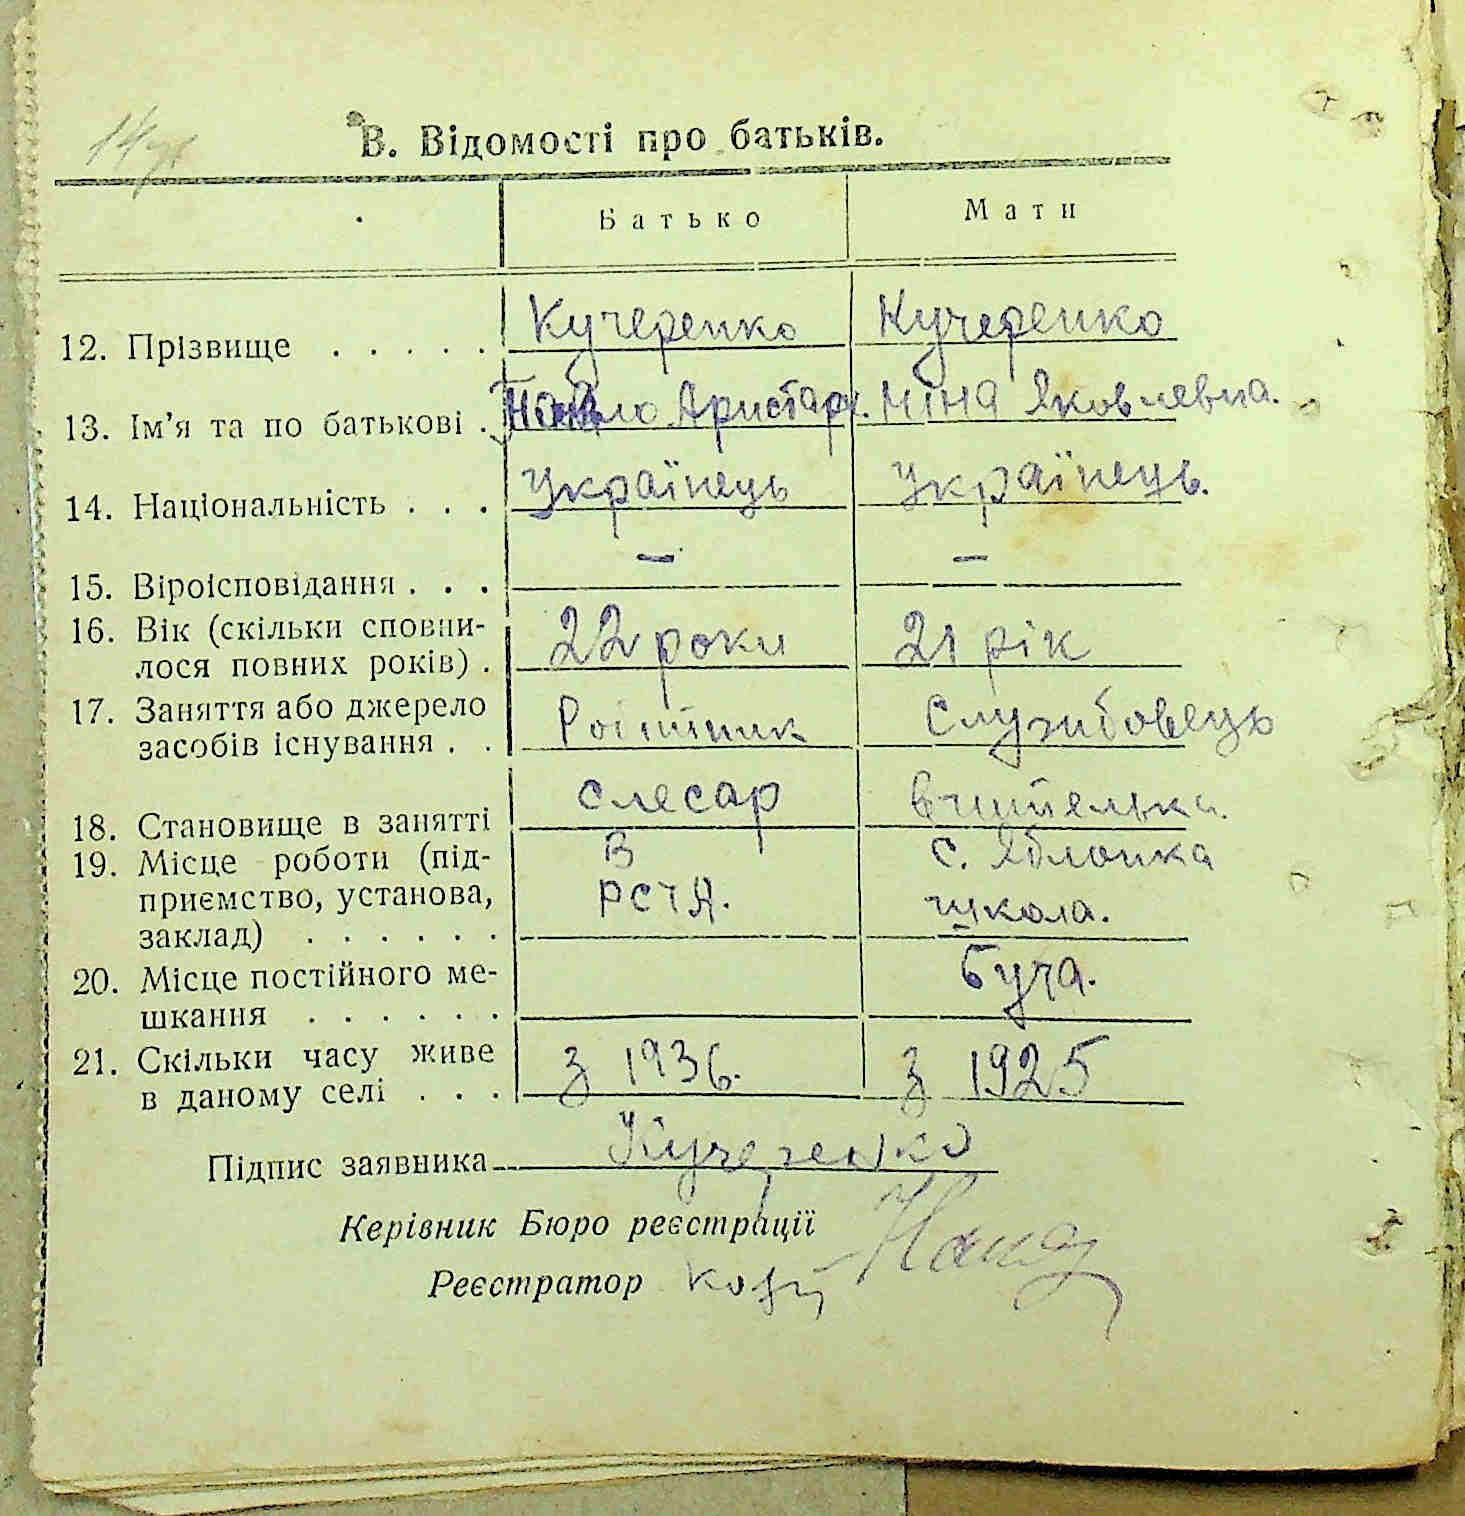 В. Відомості про батьків.
Батько Мати
12. Прізвище . . . . . Кучеренко Кучеренко
13. Ім'я та по батькові . Павло Аристарх. Ніна Яковлевна.
14. Національність . . . Українець Українець.
15. Віроісповідання . . . — —
16. Вік (скільки сповни-
лося повних років) . 22 роки 21 рік
17. Заняття або джерело
засобів існування . . Робітник Службовець
18. Становище в занятті слесар вчителька.
19. Місце роботи (під- в с. Яблонка
приємство, установа, школа.
заклад) . . . . . .
20. Місце постійного ме- Буча.
шкання . . . . . .
21. Скільки часу живе
в даному селі . . . з 1936. з 1925
Підпис заявника Кучеренко
Керівник Бюро реєстрації
Реєстратор